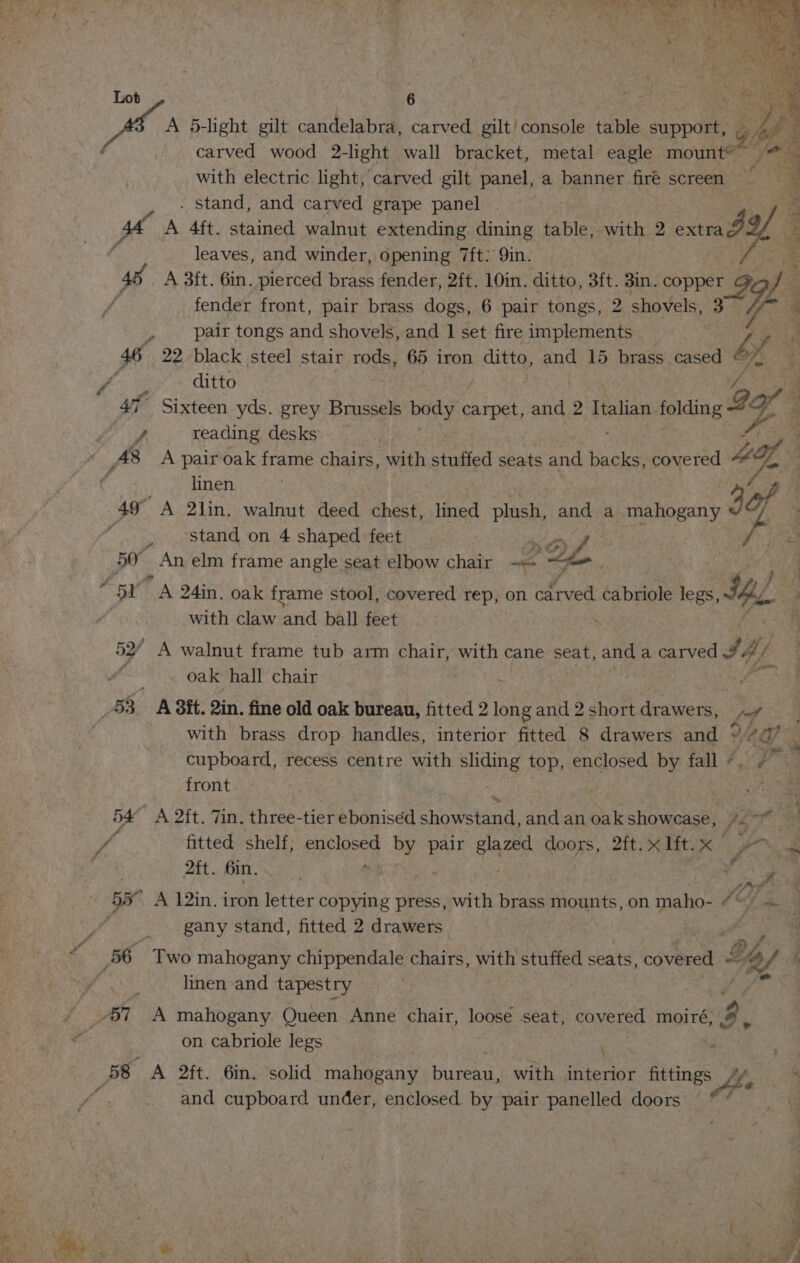 Lot 6
43 A 5-light gilt candelabra, carved gilt console table support,
carved wood 2-light wall bracket, metal eagle mount
with electric light, carved gilt panel, a banner fire screen
stand, and carved grape panel
44 A 4ft. stained walnut extending dining table, with 2 extra
leaves, and winder, opening 7ft. 9in.
45 A 3ft. 6in. pierced brass fender, 2ft. 10in. ditto, 3ft. 3in. copper
fender front, pair brass dogs, 6 pair tongs, 2 shovels, 3
pair tongs and shovels, and 1 set fire implements
46 22 black steel stair rods, 65 iron ditto, and 15 brass cased
ditto
47 Sixteen yds. grey Brussels body carpet, and 2 Italian folding
reading desks
48 A pair oak frame chairs, with stuffed seats and backs, covered
linen
49 A 21in. walnut deed chest, lined plush, and a mahogany
stand on 4 shaped feet
50 An elm frame angle seat elbow chair
51 A 24in. oak frame stool, covered rep, on carved cabriole legs,
with claw and ball feet
52 A walnut frame tub arm chair, with cane seat, and a carved
oak hall chair
53 A 3ft. 2in. fine old oak bureau, fitted 2 long and 2 short drawers,
with brass drop handles, interior fitted 8 drawers and
cupboard, recess centre with sliding top, enclosed by fall
front
54 A 2ft. 7in. three-tier ebonised showstand, and an oak showcase,
fitted shelf, enclosed by pair glazed doors, 2ft. x 1ft. x
2ft. 6in.
55 A 12in. iron letter copying press, with brass mounts, on maho-
gany stand, fitted 2 drawers
56 Two mahogany chippendale chairs, with stuffed seats, covered
linen and tapestry
57 A mahogany Queen Anne chair, loose seat, covered moiré,
on cabriole legs
58 A 2ft. 6in. solid mahogany bureau, with interior fittings
and cupboard under, enclosed by pair panelled doors